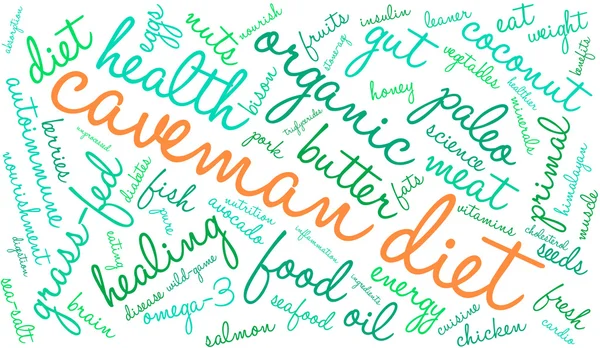 caveman diet
absorption
diet
eggs
nourish
nuts
health
insulin
leaner
eat
weight
fruits
stone-age
gut
coconut
benefits
organic
vegetables
healthier
bison
honey
paleo
minerals
autoimmune
berries
unprocessed
triglycerides
pork
butter
science
primal
himalayan
nourishment
diabetes
fats
meat
muscle
grass-fed
fish
pure
avocado
nutrition
vitamins
cholesterol
seeds
digestion
eating
healing
inflammation
disease
wild-game
food
ingredients
energy
sea-salt
brain
omega-3
seafood
oil
cuisine
fresh
salmon
chicken
cardio